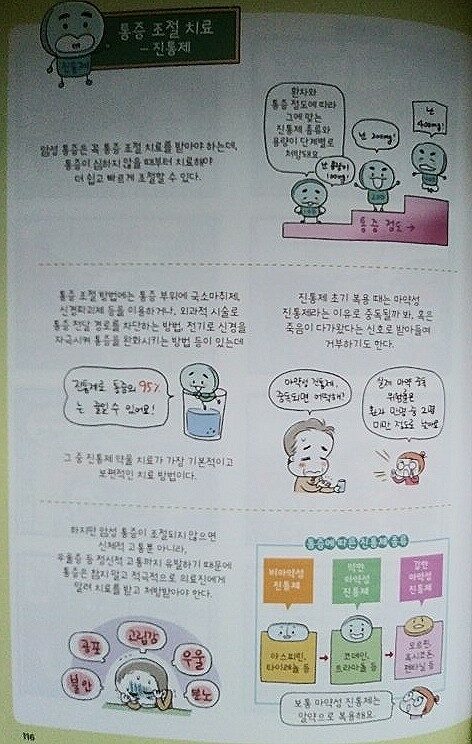 통증 조절 치료
- 진통제
암성 통증은 꼭 통증 조절 치료를 받아야 하는데,
통증이 심하지 않을 때부터 치료해야
더 쉽고 빠르게 조절할 수 있다.
환자와
통증 정도에 따라
그에 맞는
진통제 종류와
용량이 단계별로
처방돼요
난 200mg!
난
400mg!
통증 정도 →
통증 조절 방법에는 통증 부위에 국소마취제,
신경파괴제 등을 이용하거나, 외과적 시술로
통증 전달 경로를 차단하는 방법, 전기로 신경을
자극시켜 통증을 완화시키는 방법 등이 있는데
진통제로 통증의 95%
는 줄일 수 있어요!
그 중 진통제 약물 치료가 가장 기본적이고
보편적인 치료 방법이다.
진통제 초기 복용 때는 마약성
진통제라는 이유로 중독될까 봐, 혹은
죽음이 다가왔다는 신호로 받아들여
거부하기도 한다.
마약성 진통제,
중독되면 어떡해?
실제 마약 중독
위험률은
환자 만 명 중 2명
미만 정도로 낮아요
하지만 암성 통증이 조절되지 않으면
신체적 고통뿐 아니라,
우울증 등 정신적 고통까지 유발하기 때문에
통증은 참지 말고 적극적으로 의료진에게
알려 치료를 받고 처방받아야 한다.
공포
고립감
우울
불안
분노
통증에 따른 진통제 종류
비마약성
진통제
약한
마약성
진통제
강한
마약성
진통제
아스피린,
타이레놀 등
코데인,
트라마돌 등
모르핀,
옥시코돈,
펜타닐 등
보통 마약성 진통제는
알약으로 복용해요.
116